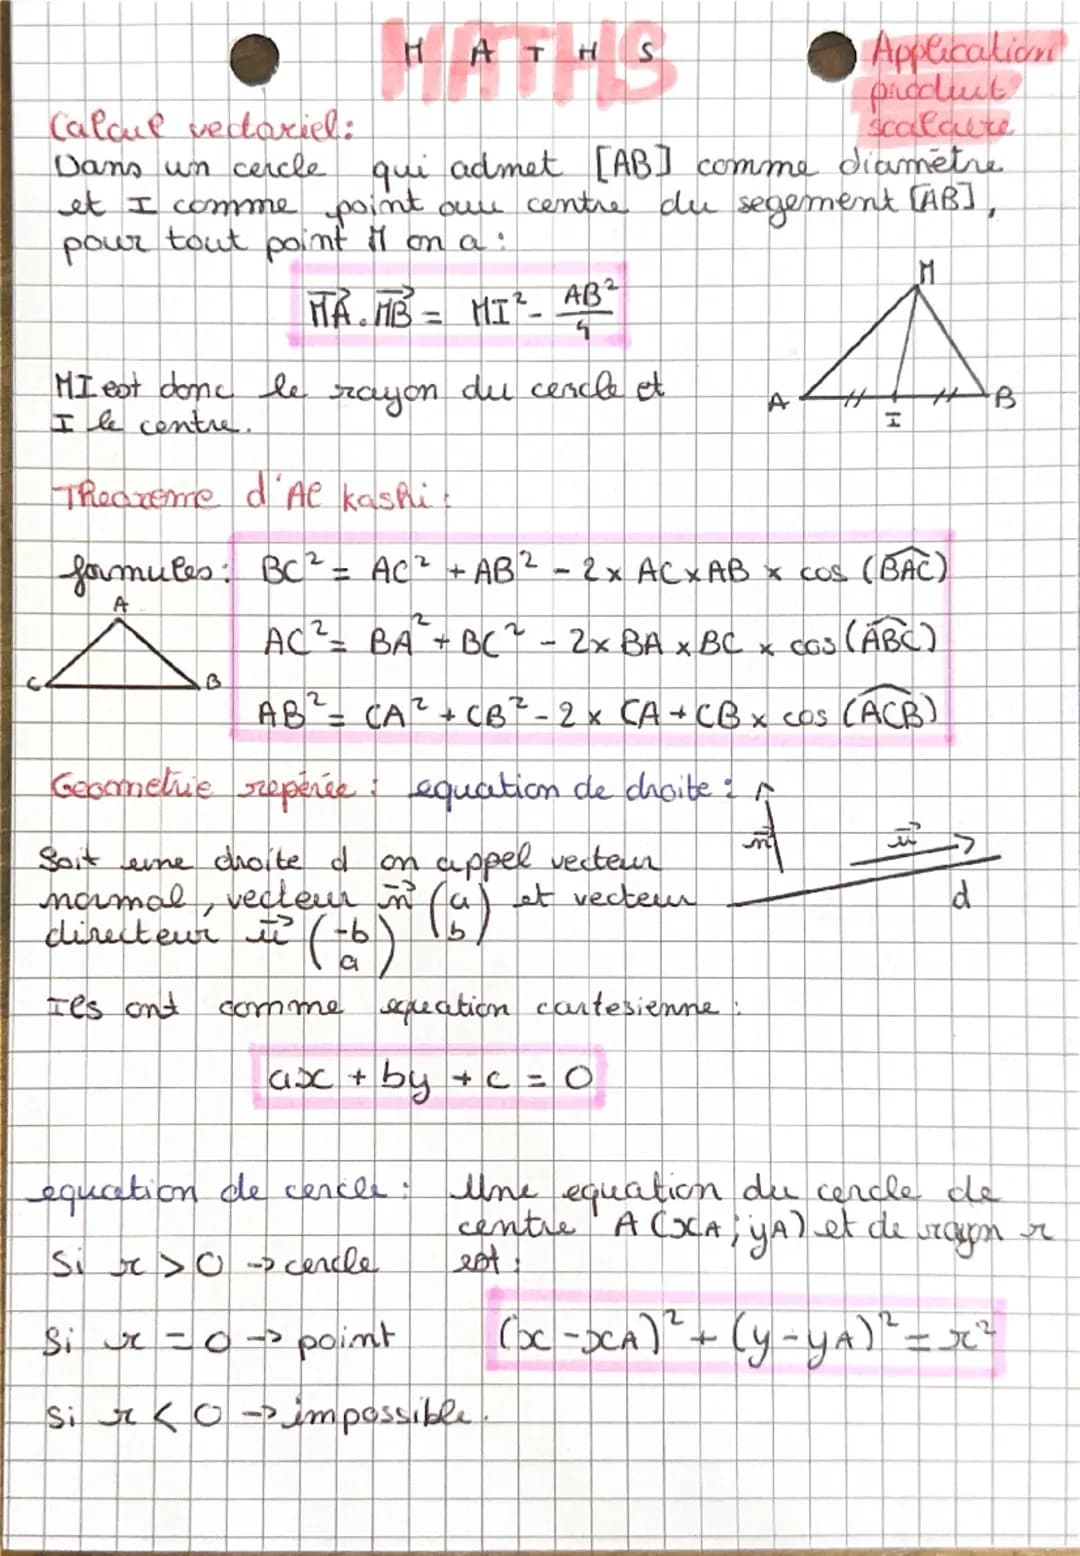 MATHS
M A T H S
Application
produit
scalaire
Calcul vectoriel:
Dans un cercle qui admet [AB] comme diamètre
et I comme point au centre du segement [AB],
pour tout point M on a :
M
MA⃗ . MB⃗ = MI² - AB²/4
MI est donc le rayon du cercle et
I le centre.
A I B
Theoreme d'Al kashi :
formules : BC² = AC² + AB² - 2 x AC x AB x cos (BAC)
A
AC² = BA² + BC² - 2 x BA x BC x cos (ABC)
C B
AB² = CA² + CB² - 2 x CA + CB x cos (ACB)
Geometrie repérée : equation de droite :
n⃗ u⃗
d
Soit une droite d on appel vecteur
normal, vecteur n⃗ (a b) et vecteur
directeur u⃗ (-b a)
Ils ont comme equation cartesienne :
ax + by + c = 0
equation de cercle : Une equation du cercle de
centre A (xA ; yA) et de rayon r
est :
Si r > 0 -> cercle
Si r = 0 -> point
(x - xA)² + (y - yA)² = r²
Si r < 0 -> impossible.